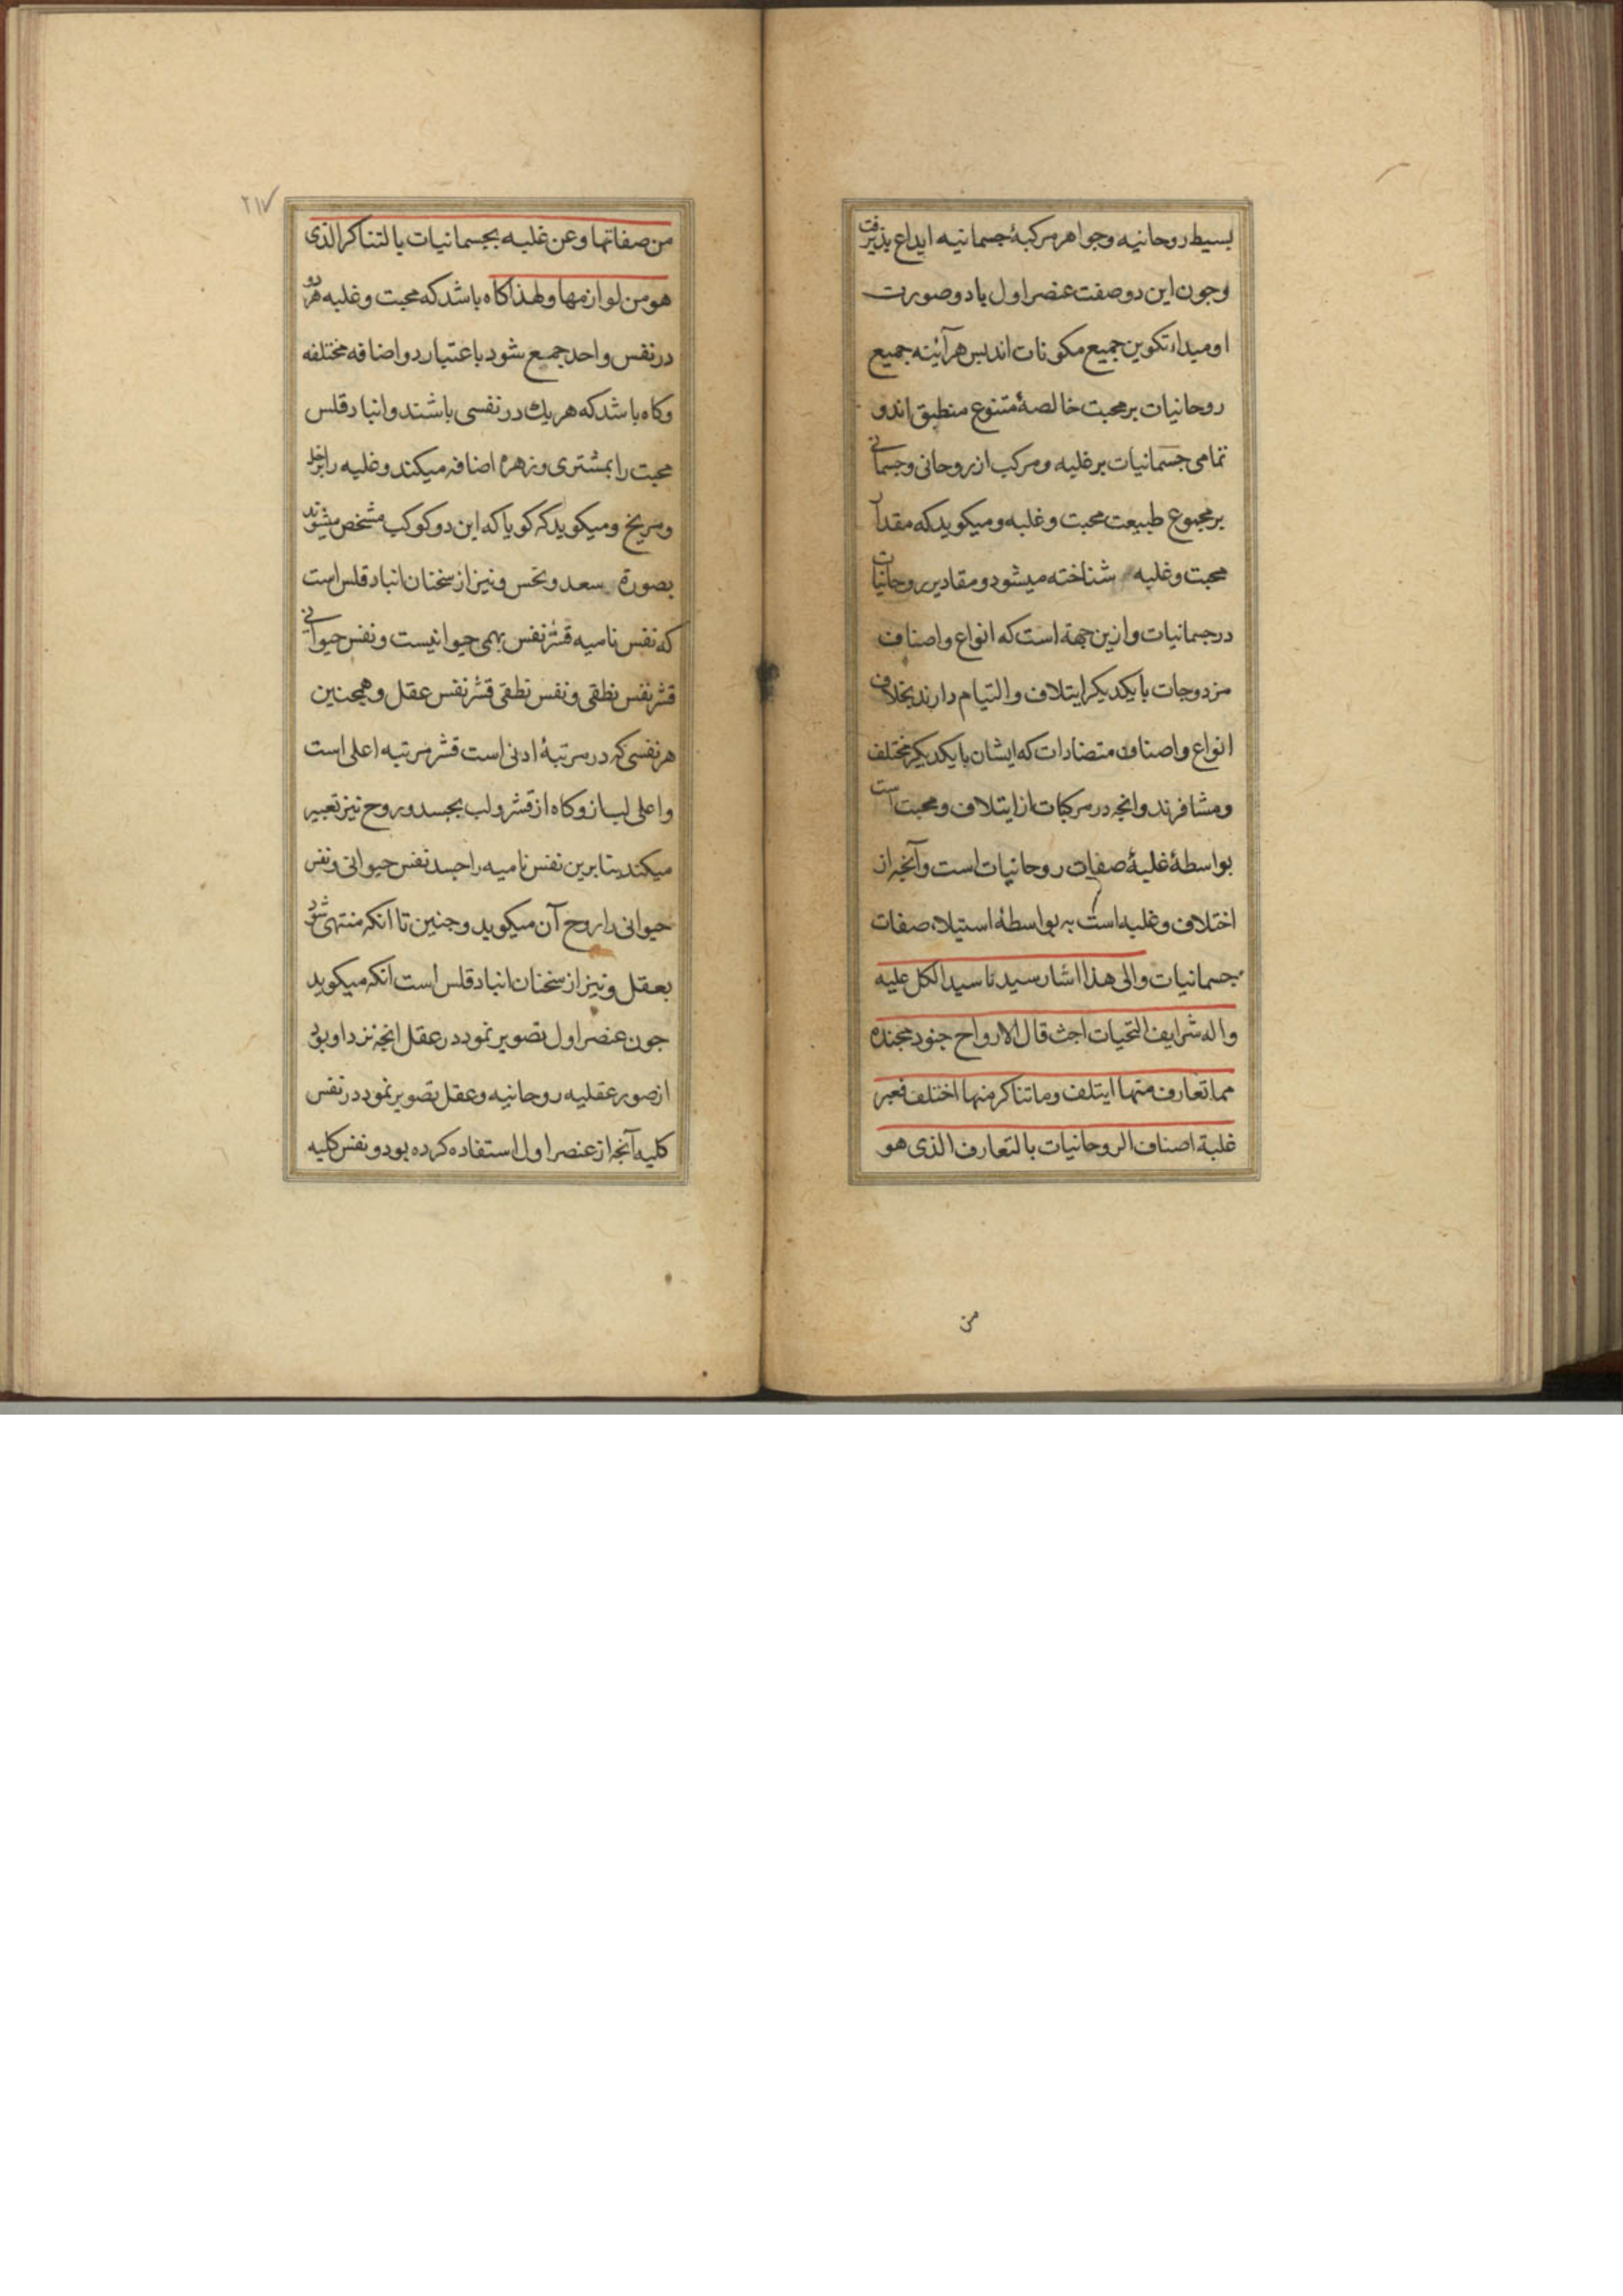 بسیط روحانیه وجواهر مرکبهٔ جسمانیه ابداع پذیرفت
وجون این دو صفت عنصر اول یا دو صورت
او مبداء تکوین جمیع مکونات اند بس هرآئینه جمیع
روحانیات بر محبت خالصهٔ متنوع منطبق اند و
تمامی جسمانیات بر غلبه ومرکب از روحانی وجسمانی
بر مجموع طبیعت محبت وغلبه ومیکوید که مقدار
محبت وغلبه شناخته میشود ومقادیر روحانیات
در جسمانیات وازین جهة است که انواع واصناف
مزدوجات با یکدیکر ایتلاف والتیام دارند بخلاف
انواع واصناف متضادات که ایشان با یکدیکر مختلف
ومتنافرند وانجه در مرکبات از ایتلاف ومحبت است
بواسطهٔ غلبهٔ صفات روحانیات است وآنجه از
اختلاف وغلبه است به بواسطهٔ استیلاء صفات
جسمانیات والی هذا اشار سیدنا سید الکل علیه
واله شرایف التحیات حیث قال الارواح جنود مجنده
مما تعارف منها ایتلف وما تناکر منها اختلف فعبر
غلبة اصناف الروحانیات بالتعارف الذی هو
من
۲۱۷
من صفاتها وعن غلبه بجسمانیات بالتناکر الذی
هو من لوازمها ولهذا کاه باشد که محبت وغلبه هر دو
در نفس واحد جمع شود باعتبار دو اضافه مختلفه
وکاه باشد که هر یك در نفسی باشند وانباد قلس
محبت را بمشتری وزهره اضافه میکند وغلبه را بزحل
ومریخ ومیکوید که کویا که این دو کوکب مشخص میشوند
بصورة سعد ونحس ونیز از سخنان انباد قلس است
که نفس نامیه قشر نفس بهمی حیوانیست ونفس حیوانی
قشر نفس نطقی ونفس نطقی قشر نفس عقل وهمجنین
هر نفسی که در مرتبهٔ ادنی است قشر مرتبه اعلی است
واعلی لب ازو کاه از قشر ولب بجسد وروح نیز تعبیر
میکند بنا برین نفس نامیه را جسد نفس حیوانی ونفس
حیوانی را روح آن میکوید وجنین تا انکه منتهی شود
بعقل ونیز از سخنان انباد قلس است انکه میکوید
جون عنصر اول تصویر نمود در عقل انجه نزد او بود
از صور عقلیه روحانیه وعقل تصویر نمود در نفس
کلیه آنجه از عنصر اول استفاده کرده بود ونفس کلیه